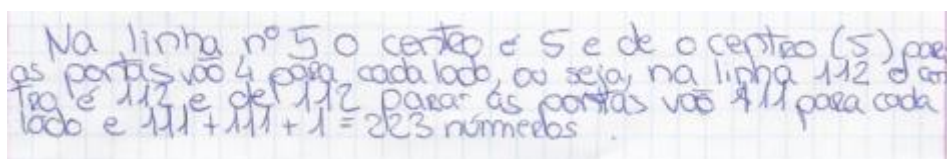 Na linha nº 5 o centro é 5 e de o centro (5) para
as pontas vão 4 para cada lado, ou seja, na linha 112 o cen
tro é 112 e de 112 parar as pontas vão 111 para cada
lado e 111+111+1=223 númmeros.